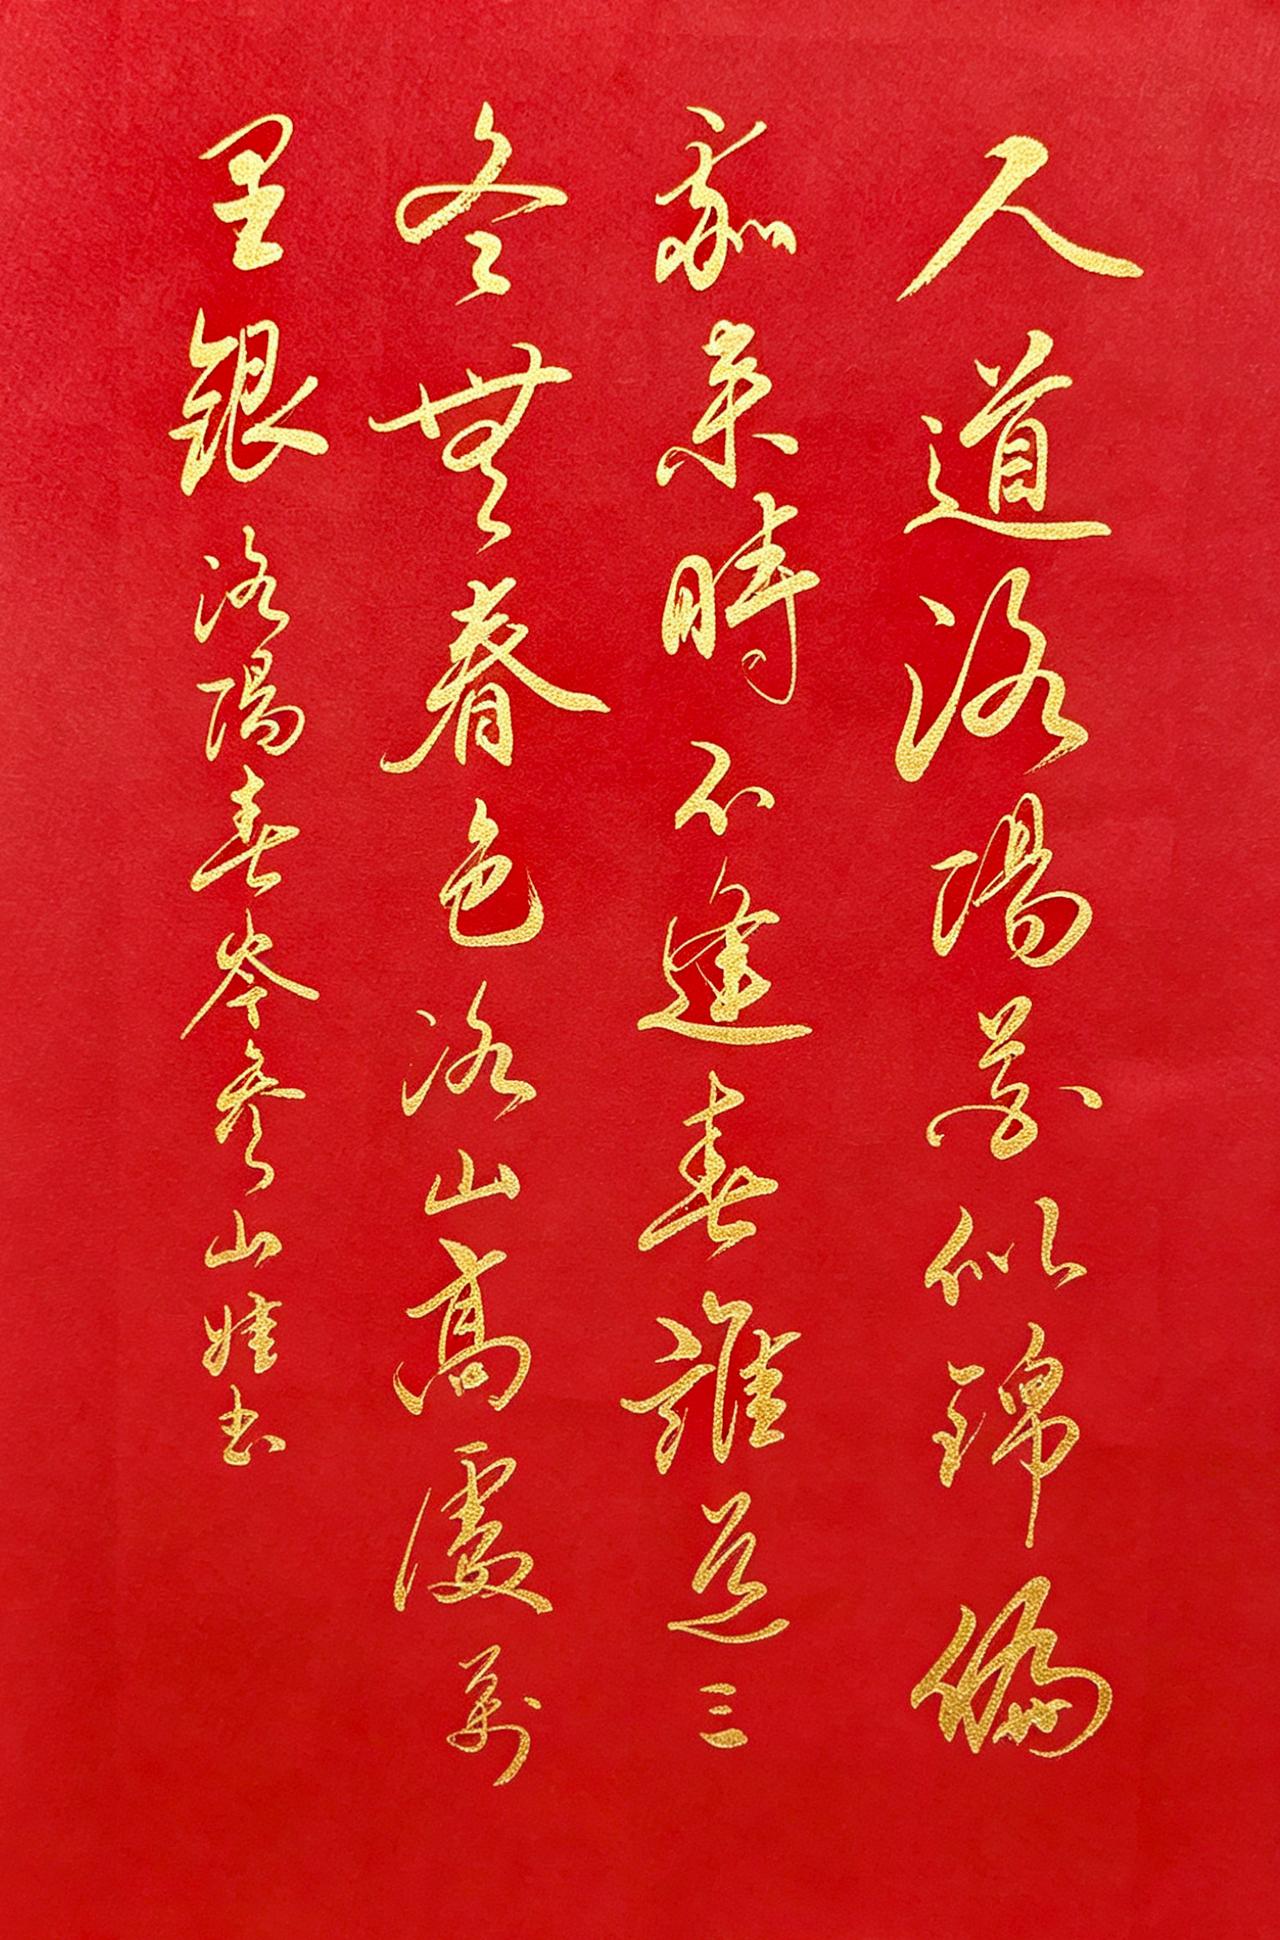 人道洛陽花似錦偏
我来時不逢春誰道三
冬無春色洛山高處萬
里銀 洛陽春岑參山娃书